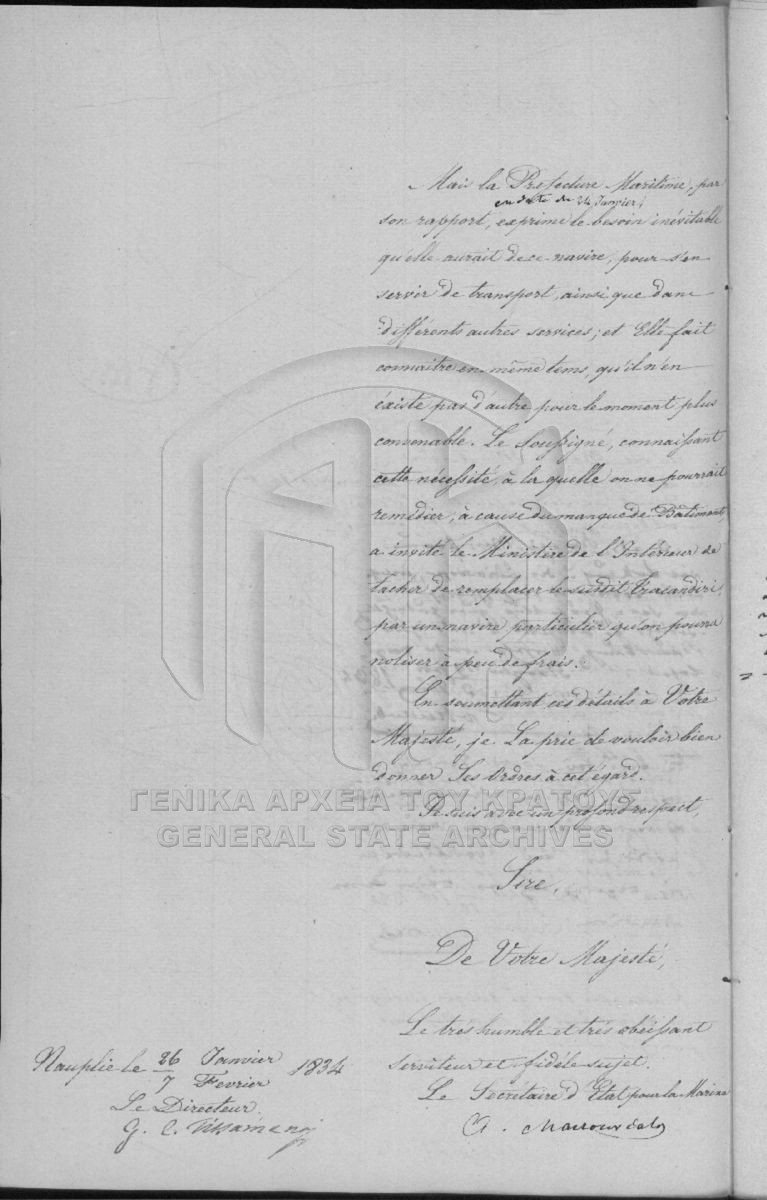 Mais la Préfecture Maritime, par
en date du 24 Janvier,
son rapport, exprime le besoin inévitable
qu'elle aurait de ce navire, pour s'en
servir de transport, ainsi que dans
différents autres services; et Elle fait
connaître en même tems, qu'il n'en
éxiste pas d'autre pour le moment plus
convenable. Le Soussigné, connaissant
cette nécessité, à la quelle on ne pourrait
remédier, à cause du manque de Bâtiments,
a invité le Ministère de l'Intérieur de
tacher de remplacer le susdit Tracandiri,
par un navire particulier qu'on pourra
noliser à peu de frais.
En soumettant ces détails à Votre
Majesté, je La prie de vouloir bien
donner Ses Ordres à cet égard.
Je suis avec un profond respect,
ΓΕΝΙΚΑ ΑΡΧΕΙΑ ΤΟΥ ΚΡΑΤΟΥΣ
GENERAL STATE ARCHIVES
Sire,
De Votre Majesté,
Le très humble et très obéissant
serviteur et fidèle sujet.
Le Secrétaire d'Etat pour la Marine
Nauplie le 26 Janvier / 7 Fevrier 1834
Le Directeur
G. C.